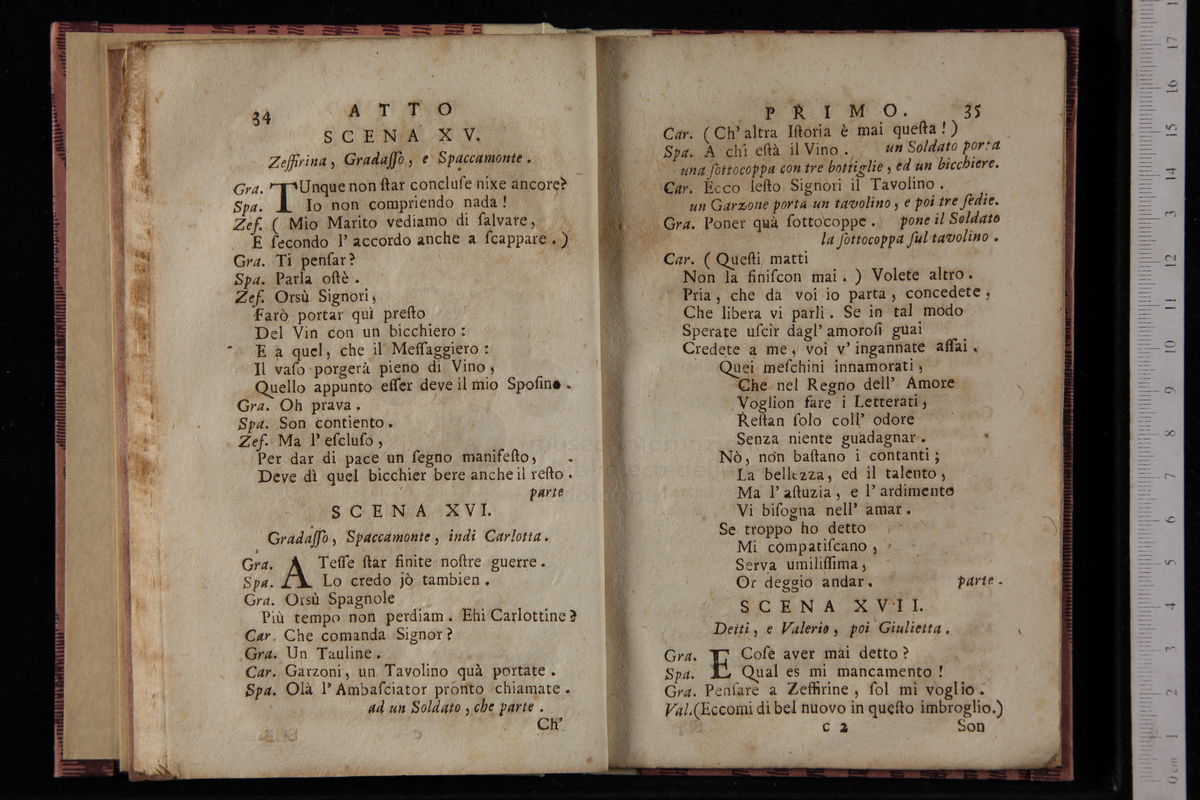 34 ATTO
SCENA XV.
Zeffirina, Gradaſſo, e Spaccamonte.
Gra. TUnque non ſtar concluſe nixe ancore?
Spa. Io non compriendo nada!
Zef. ( Mio Marito vediamo di ſalvare,
E ſecondo l' accordo anche a ſcappare. )
Gra. Ti penſar?
Spa. Parla oſtè.
Zef. Orsù Signori,
Farò portar quì preſto
Del Vin con un bicchiero:
E a quel, che il Meſſaggiero:
Il vaſo porgerà pieno di Vino,
Quello appunto eſſer deve il mio Spoſino.
Gra. Oh prava.
Spa. Son contiento.
Zef. Ma l' eſcluſo,
Per dar di pace un ſegno manifeſto,
Deve dì quel bicchier bere anche il reſto.
parte
SCENA XVI.
Gradaſſo, Spaccamonte, indi Carlotta.
Gra. ATeſſe ſtar finite noſtre guerre.
Spa. Lo credo jò tambien.
Gra. Orsù Spagnole
Più tempo non perdiam. Ehi Carlottine?
Car. Che comanda Signor?
Gra. Un Tauline.
Car. Garzoni, un Tavolino quà portate.
Spa. Olà l' Ambaſciator pronto chiamate.
ad un Soldato, che parte.
Ch'
PRIMO. 35
Car. (Ch' altra Iſtoria è mai queſta!)
Spa. A chi eſtà il Vino. un Soldato porta
una ſottocoppa con tre bottiglie, ed un bicchiere.
Car. Ecco leſto Signori il Tavolino.
un Garzone porta un tavolino, e poi tre ſedie.
Gra. Poner quà ſottocoppe. pone il Soldato
la ſottocoppa ſul tavolino.
Car. (Queſti matti
Non la finiſcon mai. ) Volete altro.
Pria, che da voi io parta, concedete,
Che libera vi parli. Se in tal modo
Sperate uſcir dagl' amoroſi guai
Credete a me, voi v' ingannate aſſai.
Quei meſchini innamorati,
Che nel Regno dell' Amore
Voglion fare i Letterati,
Reſtan ſolo coll' odore
Senza niente guadagnar.
Nò, non baſtano i contanti;
La bellezza, ed il talento,
Ma l' aſtuzia, e l' ardimento
Vi biſogna nell' amar.
Se troppo ho detto
Mi compatiſcano,
Serva umiliſſima,
Or deggio andar. parte.
SCENA XVII.
Detti, e Valerio, poi Giulietta.
Gra. E Coſe aver mai detto?
Spa. Qual es mi mancamento!
Gra. Penſare a Zeffirine, ſol mi voglio.
Val. (Eccomi di bel nuovo in queſto imbroglio.)
C 2 Son